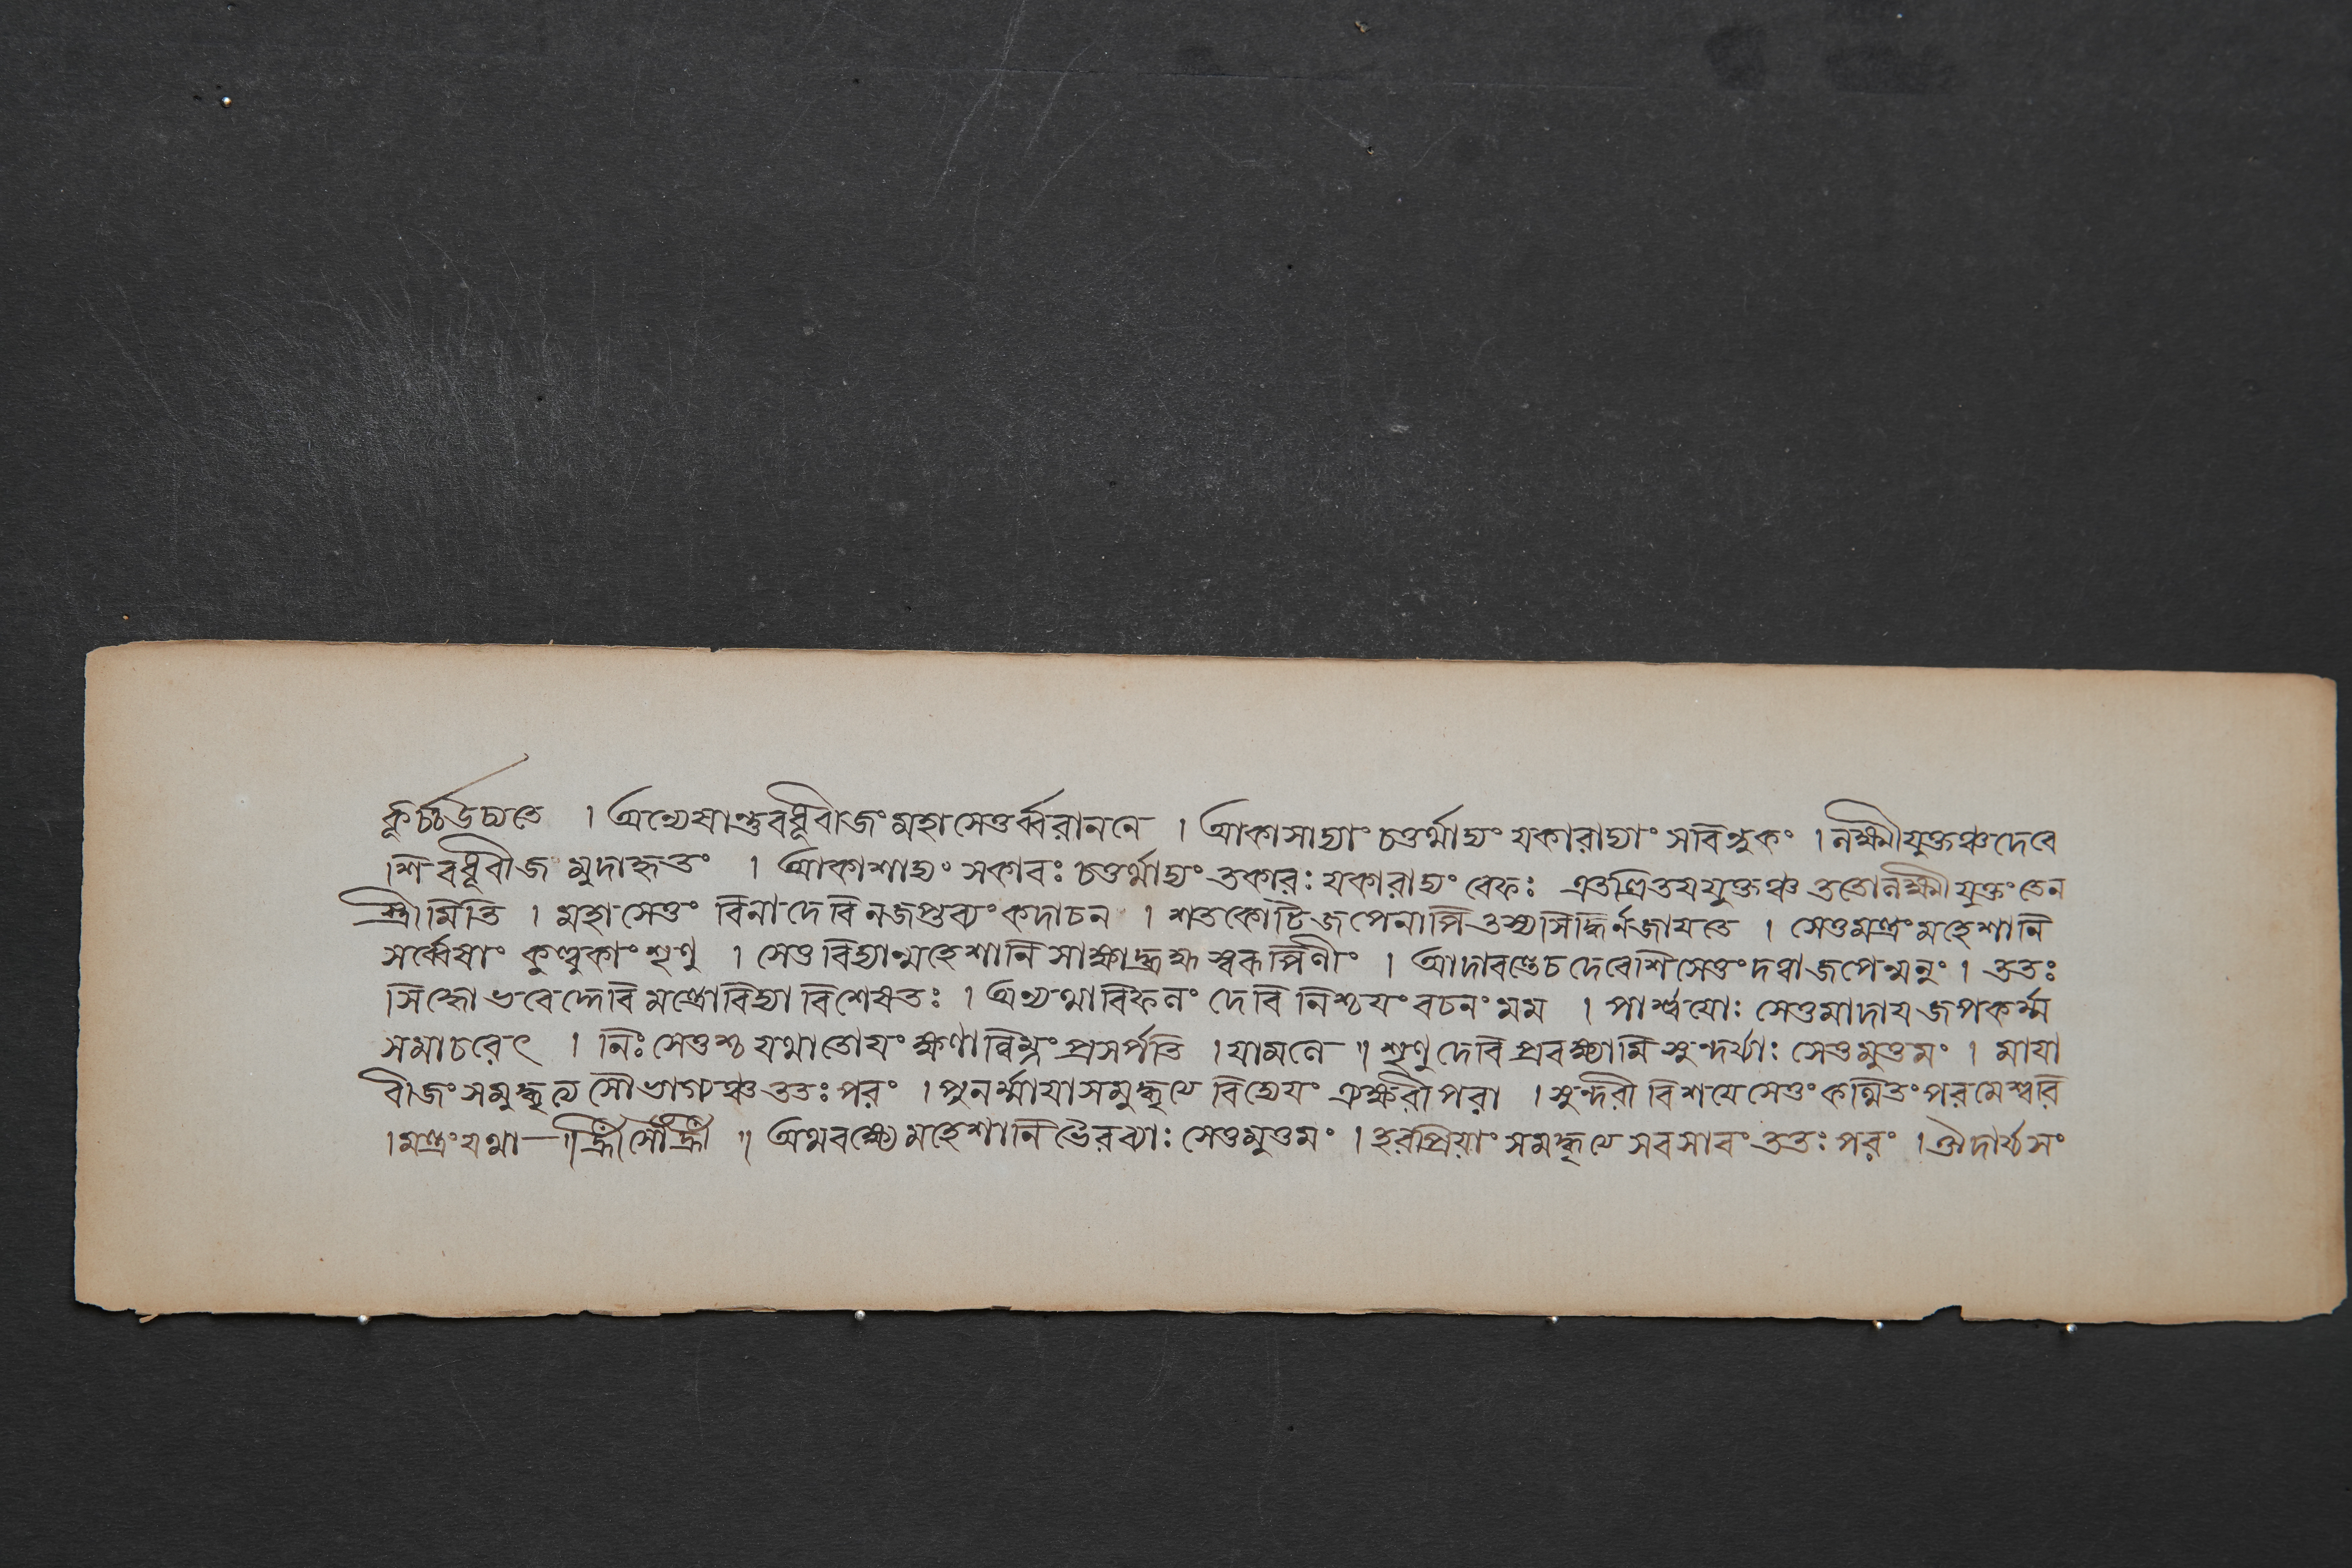 কূর্চ্চউচ্যতে । অন্যেষান্তুবধূবীজং মহাসেতুর্ব্বরাননে । আকাসাদ্যাং চতুর্থাদ্যং যকারাদ্যাং সবিন্দুকং । লক্ষ্মীযুক্তঞ্চদেবে
শি বধূবীজ মুদাহৃতং । আকাশাদ্যং সকারঃ চতুর্থাদ্যং তকারঃ যকারাদ্যং রেফঃ এতত্রিতয়যুক্তঞ্চ ততোলক্ষ্মীযুক্তং তেন
স্ত্রীমিতি । মহাসেতুং বিনাদেবি নজপ্তব্যং কদাচন । শতকোটিজপেনাপি তস্যসিদ্ধির্নজায়তে । সেতুমন্ত্রং মহেশানি
সর্ব্বেষাং কুল্লুকাং শৃণু । সেতুবিদ্যান্মহেশানি সাক্ষাদ্ব্রহ্মস্বরূপিণীং । আদাবন্তেচ দেবেশি সেতুং দত্বাজপেন্মনুং । ততঃ
সিদ্ধো ভবেদ্দেবি মন্ত্রোবিদ্যা বিশেষতঃ । অন্যথাবিফলং দেবি নিশ্চয়ং বচনং মম । পার্শ্বয়োঃ সেতুমাদায় জপকর্ম্ম
সমাচরেৎ । নিঃসেতুশ্চ যথাতোয়ং ক্ষণান্নিম্নং প্রসর্পতি । যামলে ॥ শৃণুদেবি প্রবক্ষ্যামি সুন্দর্য্যাঃ সেতুমুত্তমং । মায়া
বীজং সমুদ্ধৃত্য সৌভাগ্যঞ্চ ততঃপরং । পুনর্ম্মায়াসমুদ্ধৃত্য বিদ্যেয়ং ত্র্যক্ষরীপরা । সুন্দরী বিশয়েসেতুং কথিতং পরমেশ্বরি
। মন্ত্রং যথা— ॥ হ্রীঁ সৌঁ হ্রীঁ ॥ অথবক্ষ্যে মহেশানি ভৈরব্যাঃ সেতুমুত্তমং । হরপ্রিয়াং সমুদ্ধৃত্য ততঃপরং । ঔদার্য্যসং